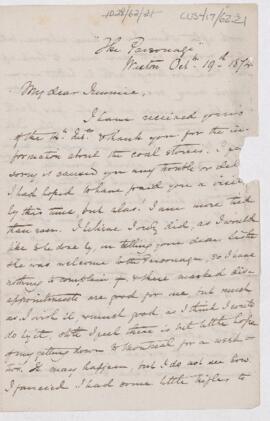 1028/62/21
CUS417/62.21
"The Parsonage"
Weston Octr. 19th 1874
My dear Jemmie,
I have received yours
of the inst. & thank you for the in-
formation about the coal stoves. I
sorry it caused you any trouble or
I had hoped to have paid you a visit
by this time, but alas! I am more tied
than ever. I believe I only did, as I would
like to be done by, in telling your dear
she was welcome to the Parsonage, so I have
nothing to complain of, & these marked dis-
appointments are good for me, but much
as I wish it, & much good as I think I would
do by it, still I feel there is but little hope
of my getting down to Montreal for a week or
two. It may happen, but I do not see how.
I fancied I had some little rights to